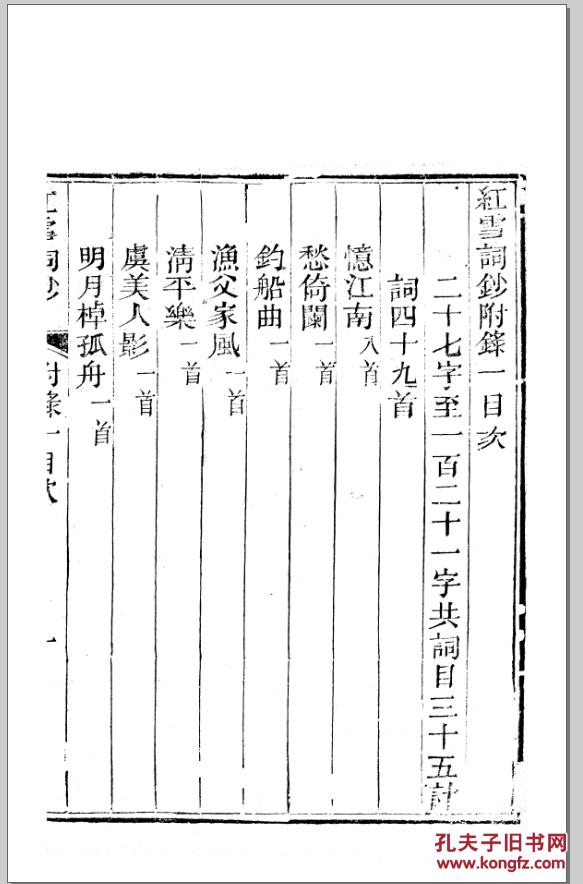 紅雪詞鈔附錄一目次
二十七字至一百二十一字共詞目三十五計
詞四十九首
憶江南八首
愁倚闌一首
釣船曲一首
漁父家風一首
淸平樂一首
虞美人影一首
明月棹孤舟一首
紅雪詞鈔 附錄一目次 一
孔夫子旧书网
www.kongfz.com